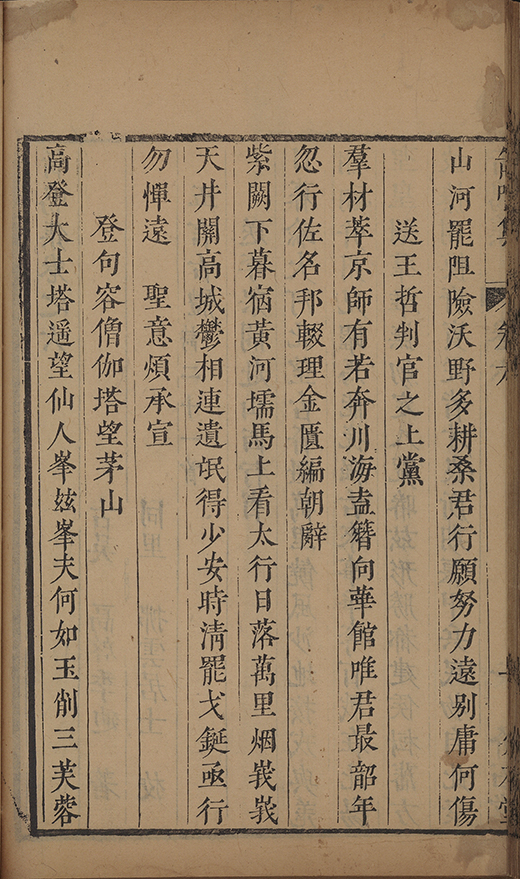 山河罷阻險沃野多耕桑君行願努力遠別庸何傷
送王哲判官之上黨
羣材萃京師有若奔川海盍簪向華館唯君最韶年
忽行佐名邦輟理金匱編朝辭
紫闕下暮宿黃河壖馬上看太行日落萬里烟峩峩
天井關高城鬱相連遺氓得少安時清罷戈鋋亟行
勿憚遠　聖意煩承宣
登句容僧伽塔望茅山
高登大士塔遥望仙人峯玆峯夫何如玉削三芙蓉